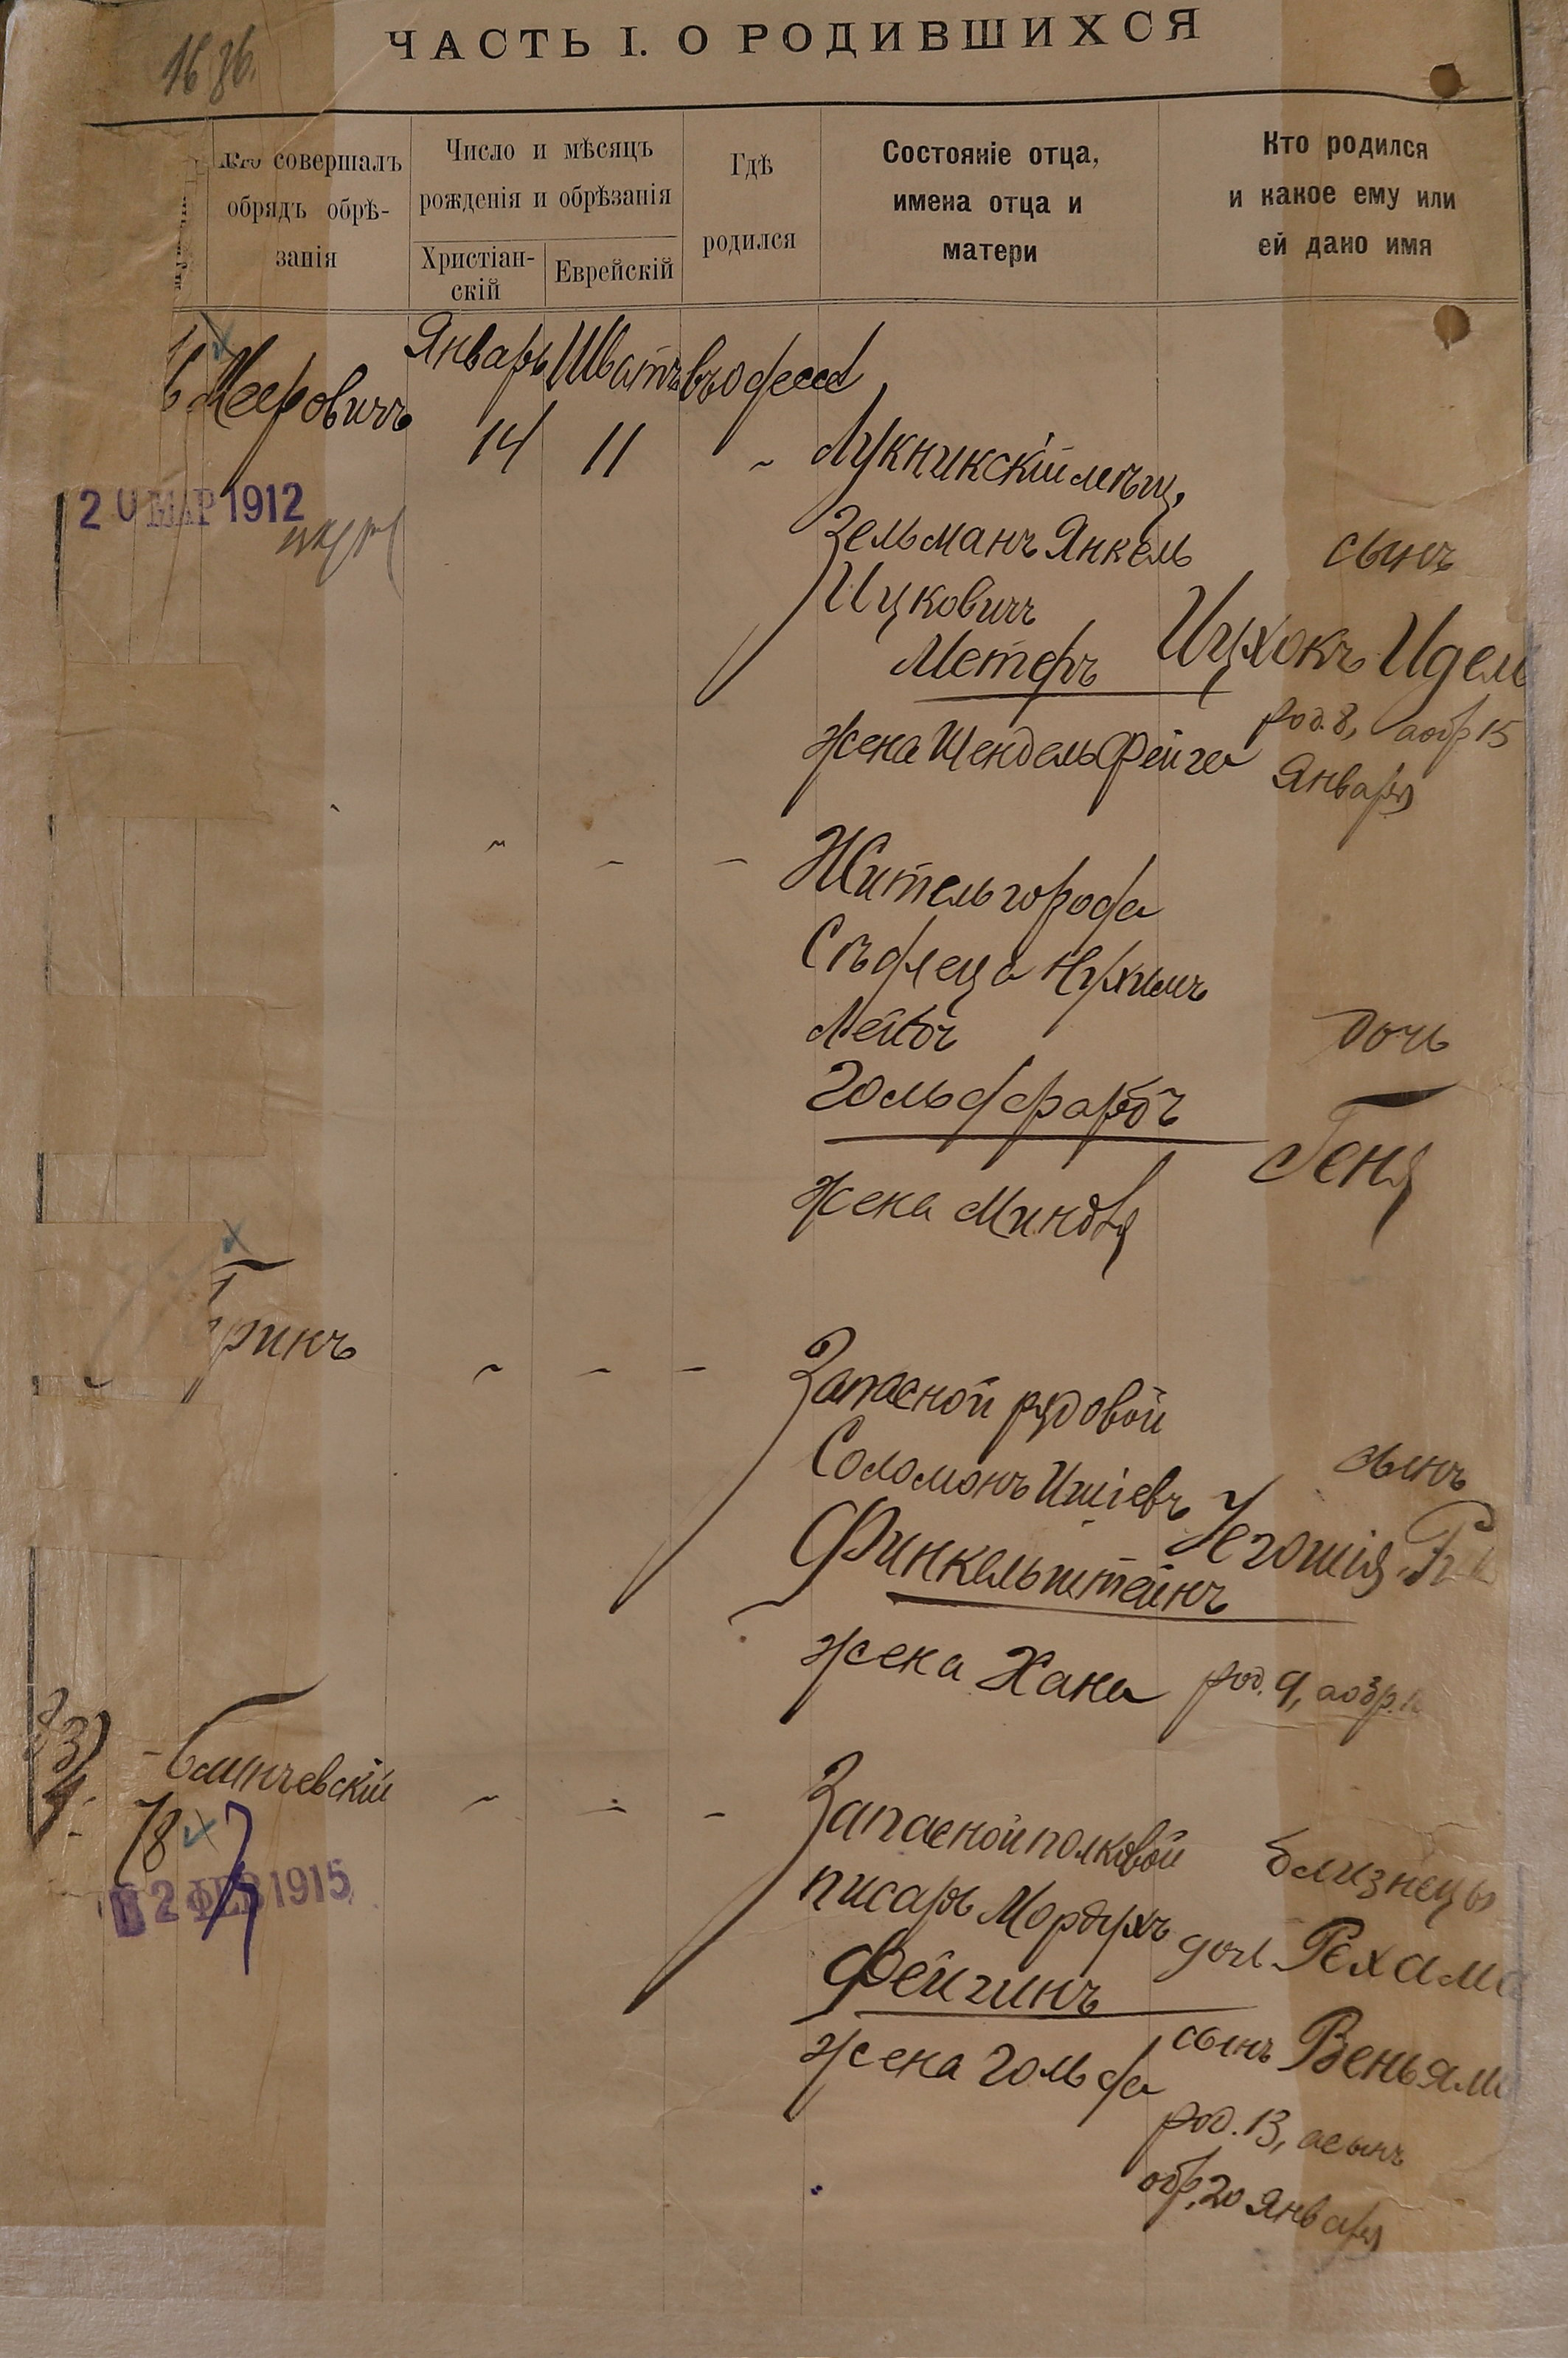 ЧАСТЬ I. О РОДИВШИХСЯ
1636.
Кто совершалъ
обрядъ обрѣ-
занія
Число и мѣсяцъ
рожденія и обрѣзанія
Христіан-
скій
Еврейскій
Гдѣ
родился
Состояніе отца,
имена отца и
матери
Кто родился
и какое ему или
ей дано имя
Мееровичъ
Январь Шватъ въ Одессѣ
14 11
20 МАР 1912
Лукникскій мѣщ.
Зельманъ Янкель
Ицковичъ
Метеръ
жена Шендель Фейга
сынъ
Ицхокъ Идель
род. 8, а обр 15
Января
Житель города
Сѣдлеца Нухимъ
Лейбъ
Гольдфарбъ
жена Миндля
дочь
Геня
ринъ
Запасной рядовой
Соломонъ Ишіевъ
Финкельштейнъ
жена Хана
сынъ
Іегошія
род. 9, а обр.
Блинчевскій
78
12 ФЕВ 1915
Запасной полковой
писарь Мордухъ
Фейгинъ
жена Гольда
близнецы
дочь Рехама
сынъ Веньями
род. 13, а сынъ
обр. 20 Января